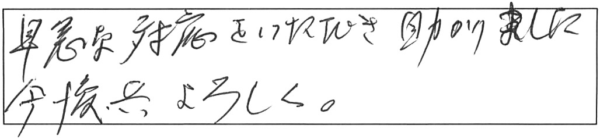 早急な対応をいただき助かりました
今後共よろしく。